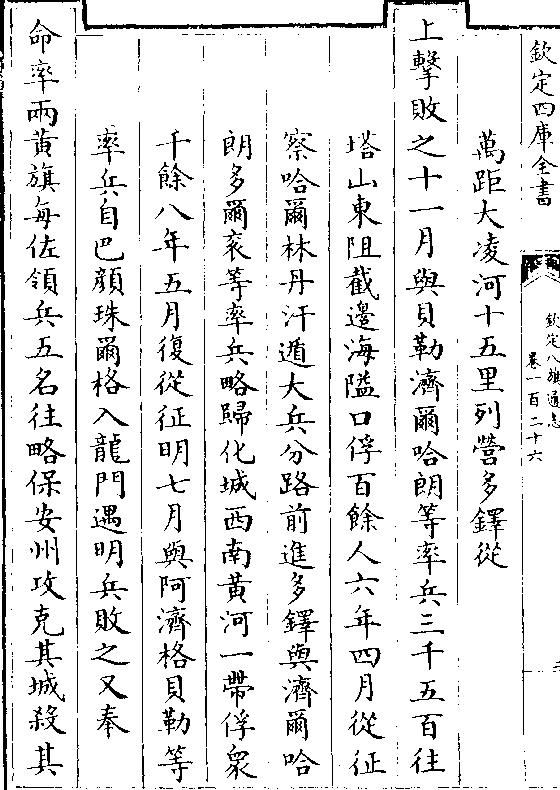 欽定四庫全書
欽定八旗通志
卷一百二十六
萬距大凌河十五里列營多鐸從
上擊敗之十一月與貝勒濟爾哈朗等率兵三千五百往
塔山東阻截邊海隘口俘百餘人六年四月從征
察哈爾林丹汗遁大兵分路前進多鐸與濟爾哈
朗多爾衮等率兵略歸化城西南黃河一帶俘衆
千餘八年五月復從征明七月與阿濟格貝勒等
率兵自巴顔珠爾格入龍門遇明兵敗之又奉
命率兩黃旗每佐領兵五名往略保安州攻克其城殺其